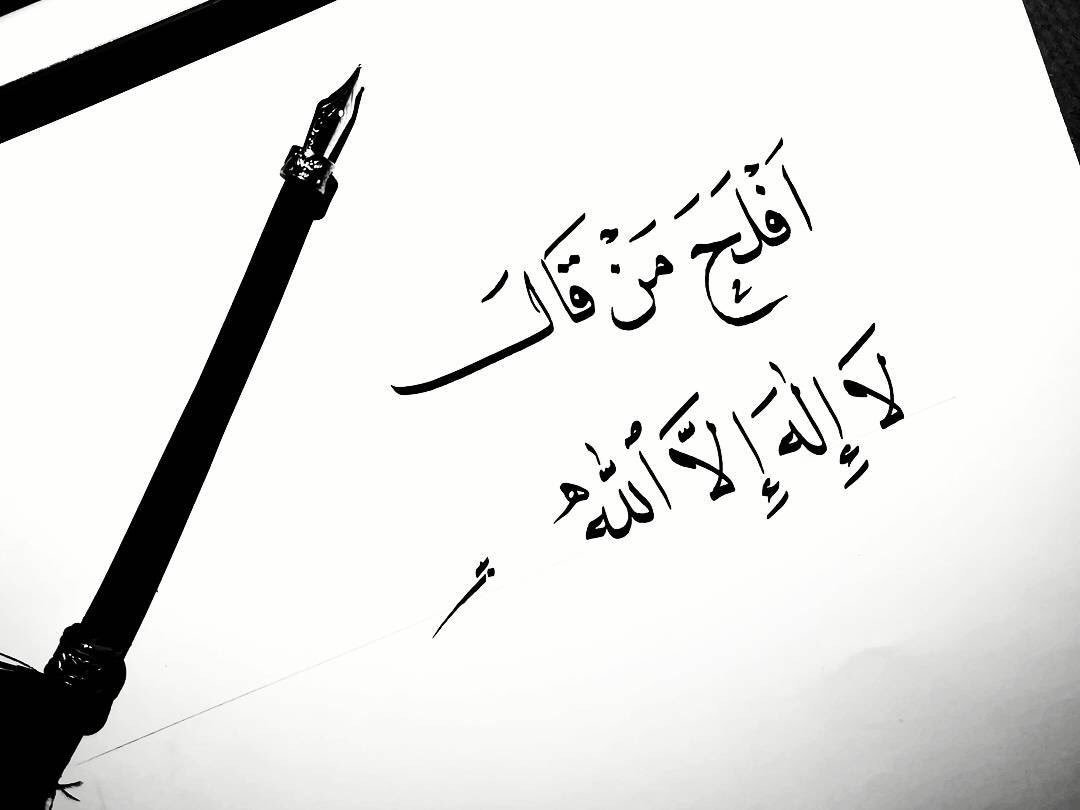 اَفْلَحَ مَنْ قَالَ
لَا إِلٰهَ إِلَّا ٱللّٰهُ